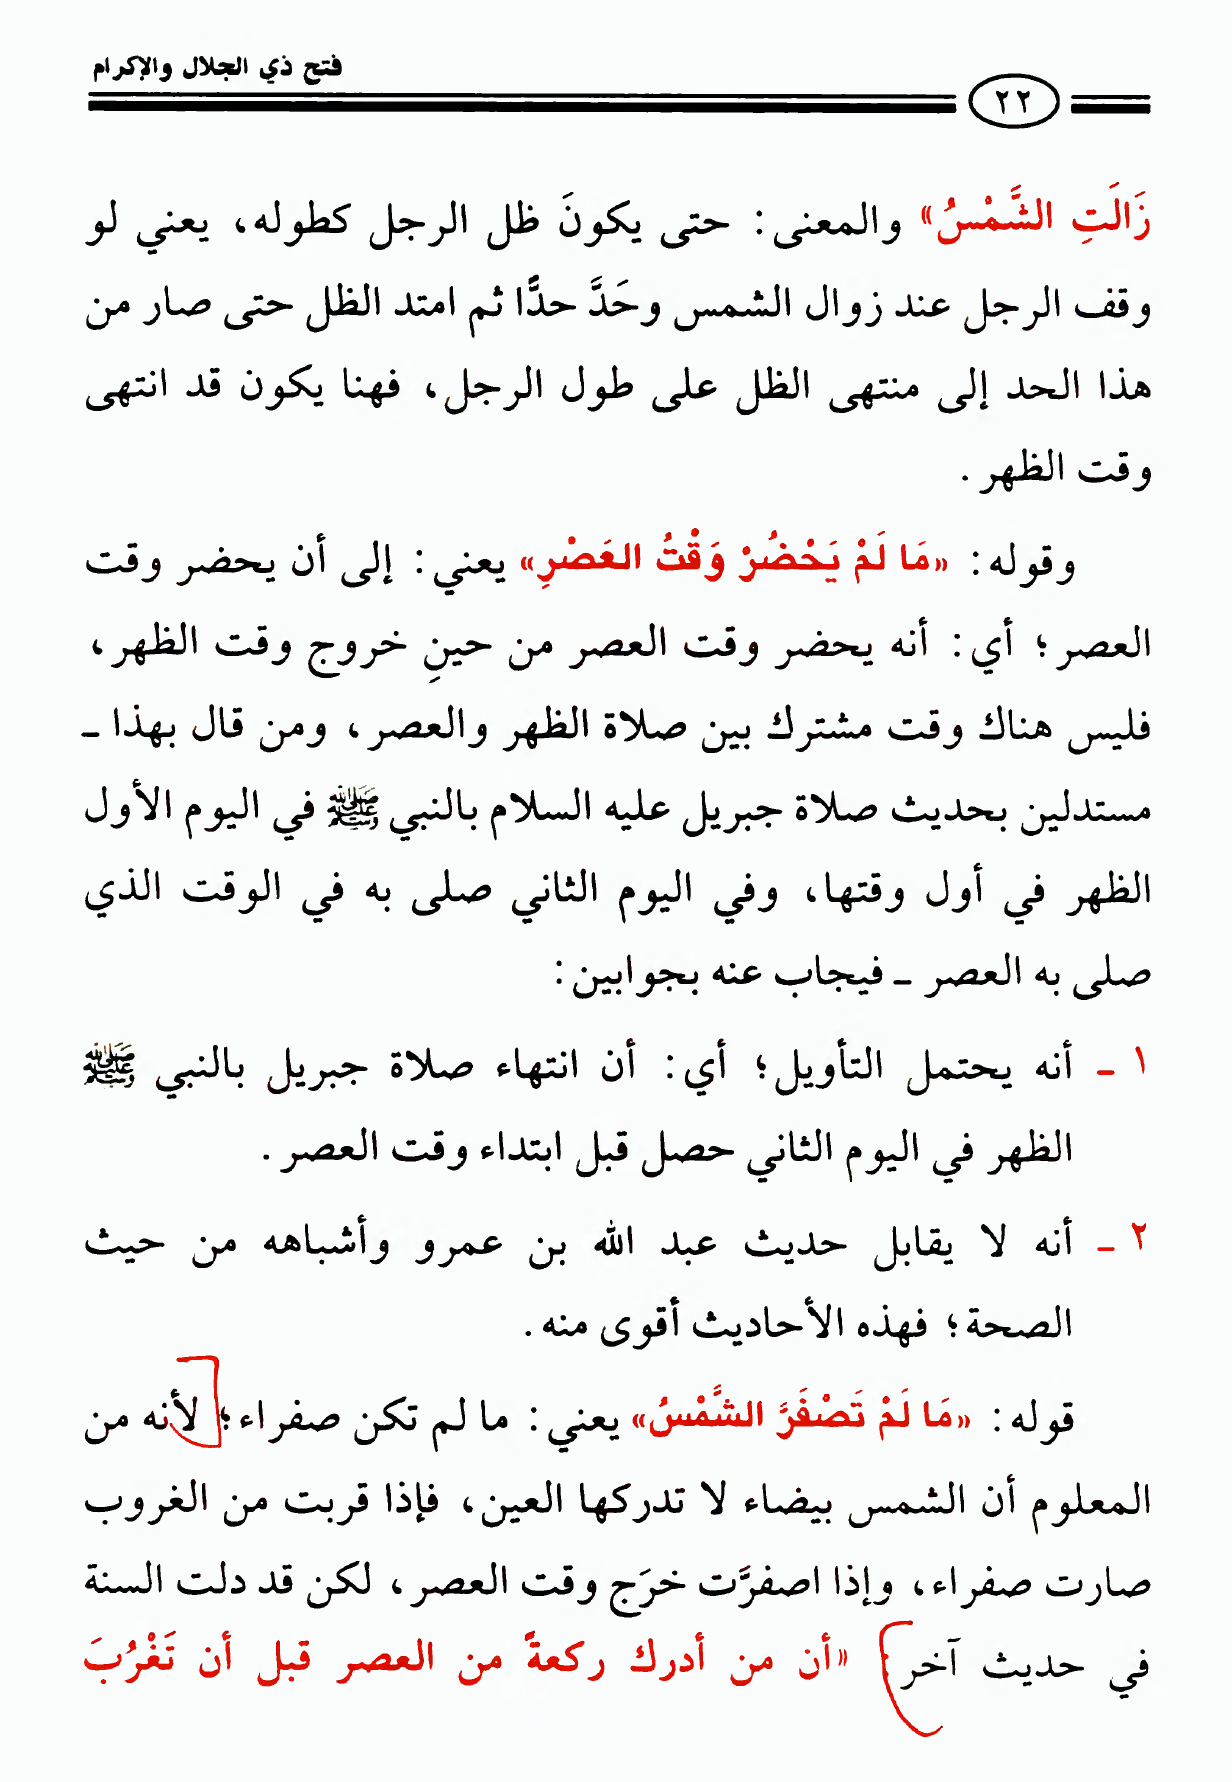 فتح ذي الجلال والإكرام
٢٢
زَالَتِ الشَّمْسُ» والمعنى: حتى يكونَ ظل الرجل كطوله، يعني لو
وقف الرجل عند زوال الشمس وحَدَّ حدًّا ثم امتد الظل حتى صار من
هذا الحد إلى منتهى الظل على طول الرجل، فهنا يكون قد انتهى
وقت الظهر.
وقوله: «مَا لَمْ يَحْضُرْ وَقْتُ العَصْرِ» يعني: إلى أن يحضر وقت
العصر؛ أي: أنه يحضر وقت العصر من حينِ خروج وقت الظهر،
فليس هناك وقت مشترك بين صلاة الظهر والعصر، ومن قال بهذا -
مستدلين بحديث صلاة جبريل عليه السلام بالنبي ﷺ في اليوم الأول
الظهر في أول وقتها، وفي اليوم الثاني صلى به في الوقت الذي
صلى به العصر - فيجاب عنه بجوابين:
١ - أنه يحتمل التأويل؛ أي: أن انتهاء صلاة جبريل بالنبي ﷺ
الظهر في اليوم الثاني حصل قبل ابتداء وقت العصر.
٢ - أنه لا يقابل حديث عبد الله بن عمرو وأشباهه من حيث
الصحة؛ فهذه الأحاديث أقوى منه.
قوله: «مَا لَمْ تَصْفَرَّ الشَّمْسُ» يعني: ما لم تكن صفراء؛ لأنه من
المعلوم أن الشمس بيضاء لا تدركها العين، فإذا قربت من الغروب
صارت صفراء، وإذا اصفرَّت خرَج وقت العصر، لكن قد دلت السنة
في حديث آخر «أن من أدرك ركعةً من العصر قبل أن تَغْرُبَ